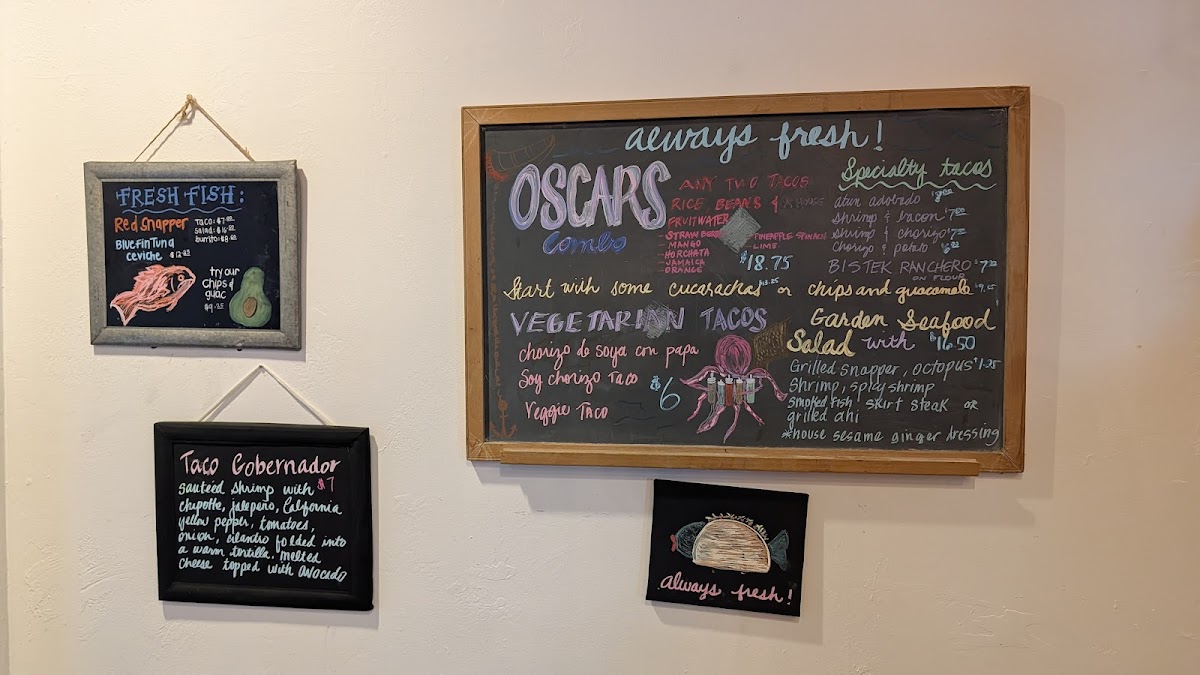 FRESH FISH:
Red Snapper
Taco: $7.00
Salad: $16.50
burrito: $8.50
Bluefin Tuna
ceviche $12.00
try our
chips &
guac
Taco Gobernador
Sauteed shrimp with $7
chipotle, jalapeño, California
yellow pepper, tomatoes,
onion, cilantro folded into
a warm tortilla. Melted
cheese topped with avocado
always fresh!
OSCARS
Combo
ANY TWO TACOS
RICE BEANS & A HOUSE
FRUITWATER
- STRAWBERRY
- PINEAPPLE SPINACH
- MANGO
- LIME
- HORCHATA
- JAMAICA
- ORANGE
$18.75
Specialty tacos
atun adobado
shrimp & bacon $7
shrimp & chorizo $7
chorizo & potato
BISTEK RANCHERO $7
ON FLOUR
Start with some cucarachas or chips and guacamole
VEGETARIAN TACOS
chorizo de soya con papa
Soy chorizo Taco
$6
Veggie Taco
Garden Seafood
Salad with $16.50
Grilled snapper, octopus
Shrimp, spicy shrimp
smoked fish, skirt steak OR
grilled ahi
*house sesame ginger dressing
always fresh!